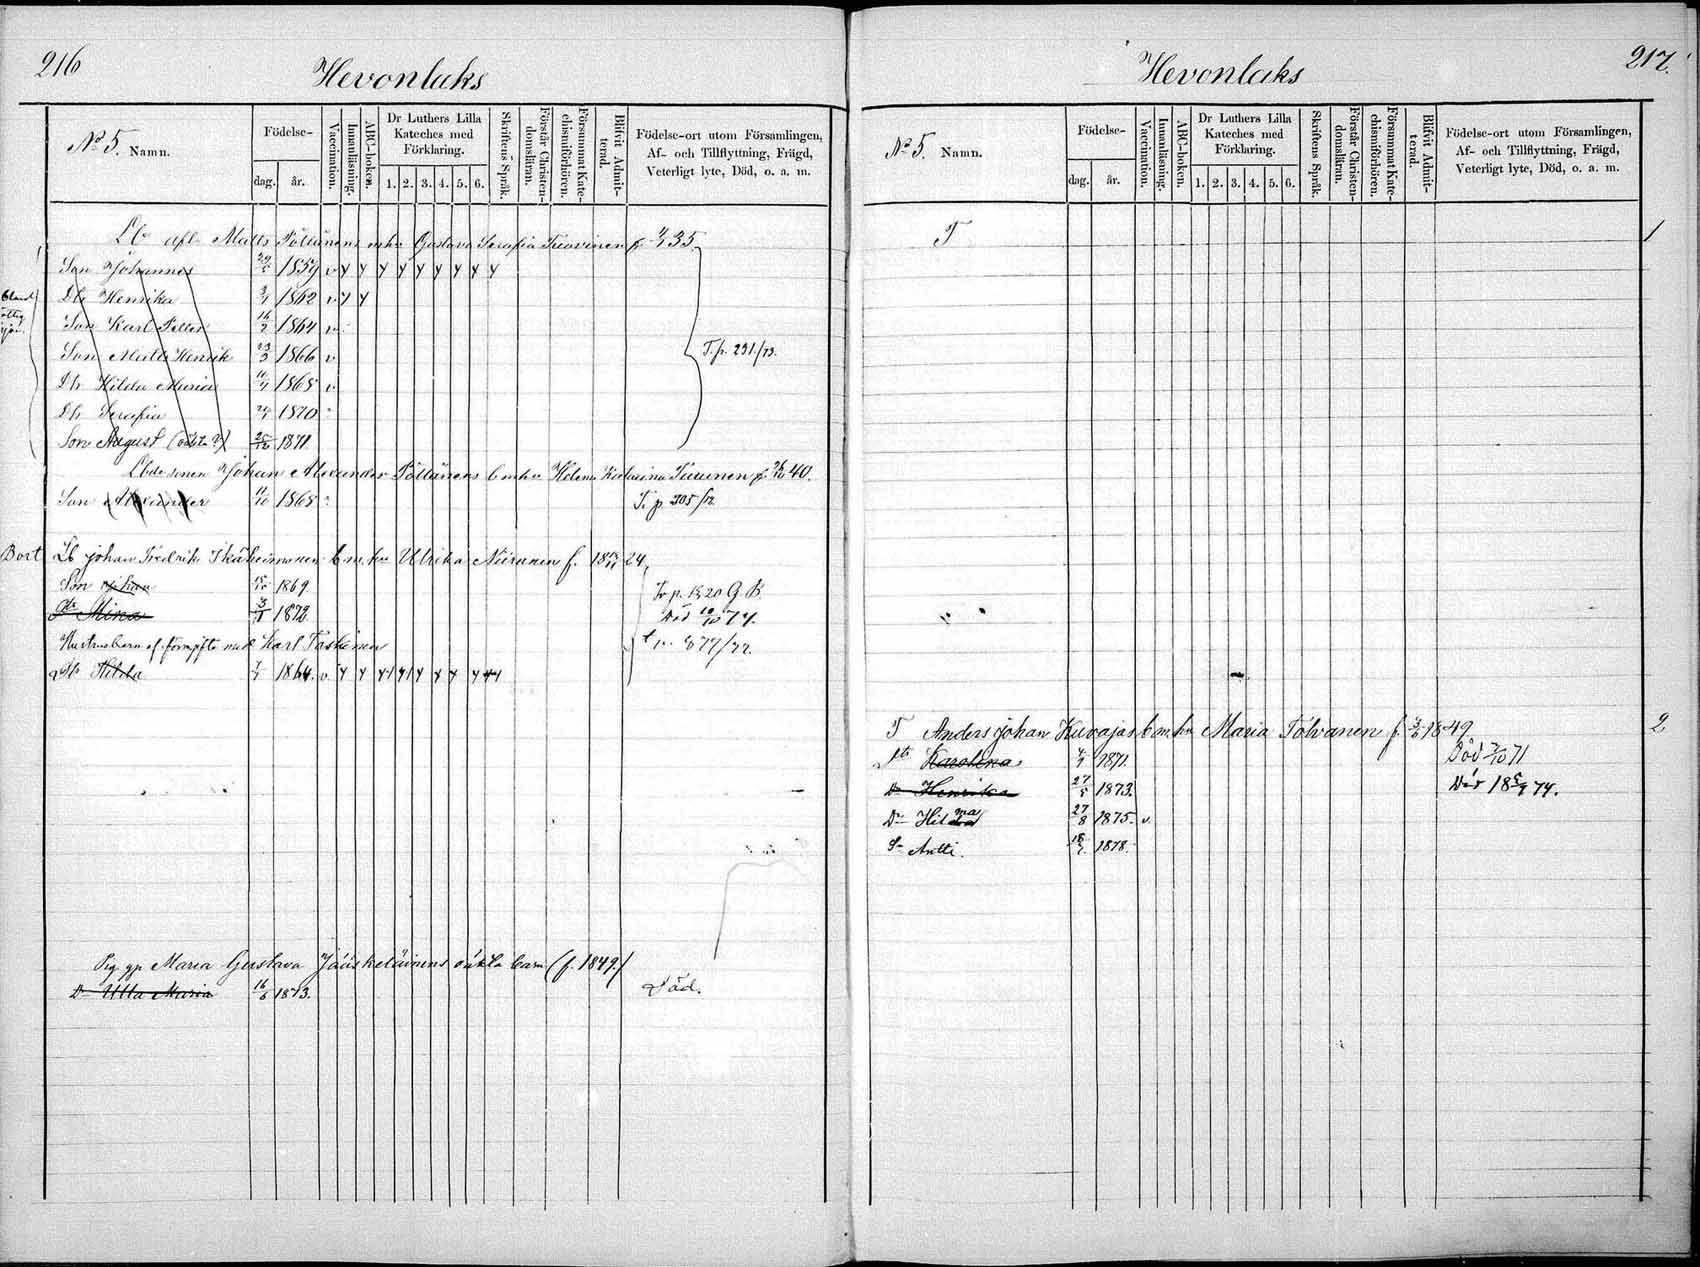 216
Hevonlaks
No 5. Namn.
Födelse-
dag. år.
Vaccination.
Innanläsning.
ABC-boken.
Dr Luthers Lilla Kateches med Förklaring.
1. 2. 3. 4. 5. 6.
Skriftens Språk.
Förstår Christendomsläran.
Försummat Katechismiförhören.
Blifvit Admitterad.
Födelse-ort utom Församlingen, Af- och Tillflyttning, Frägd, Veterligt lyte, Död, o. a. m.
Lb afl. Matts Pöllänens enka Gustava Serafia Tiarinen f. 35.
Son Johannes 29/5 1859 v
Dtr Henrika 3/7 1862 v
Son Karl Petter 16/7 1864 v
Son Matts Henrik 23/3 1866 v T. p. 291./73.
Dtr Hilda Maria 1868 v
Dtr Serafia 1870
Son August 1871
Johan Alexander Pöllänens b m. hu Helena Katarina Tiainen f. 40.
Son Alexander 11/10 1868 T. p 305/72.
Bort Lb Johan Fredrik Ikäheimonen b m. hu Ulrika Niiranen f. 18 24
Son Johan 1869.
Dtr Mina 3/1 1872. Död 10/10 74.
Karl Toskinen
Dtr Hilda 1864. v
Pig. gp Maria Gustava Jääskeläinens oäkta barn (f. 1849.)
Dr Ulla Maria 16/6 1873. Död.
217.
Hevonlaks
No 5. Namn.
Födelse-
dag. år.
Vaccination.
Innanläsning.
ABC-boken.
Dr Luthers Lilla Kateches med Förklaring.
1. 2. 3. 4. 5. 6.
Skriftens Språk.
Förstår Christendomsläran.
Försummat Katechismiförhören.
Blifvit Admitterad.
Födelse-ort utom Församlingen, Af- och Tillflyttning, Frägd, Veterligt lyte, Död, o. a. m.
T 1
T Anders Johan Kuvajas b m. hu Maria Tolvanen f. 3/6 1849 2
Dtr Karolina 1871 Död 7/10 71
Dr Henrika 27/5 1873. Död 18 5/9 74.
Dr Hilma 27/8 1875. v.
Sn Antti. 18/7 1878.